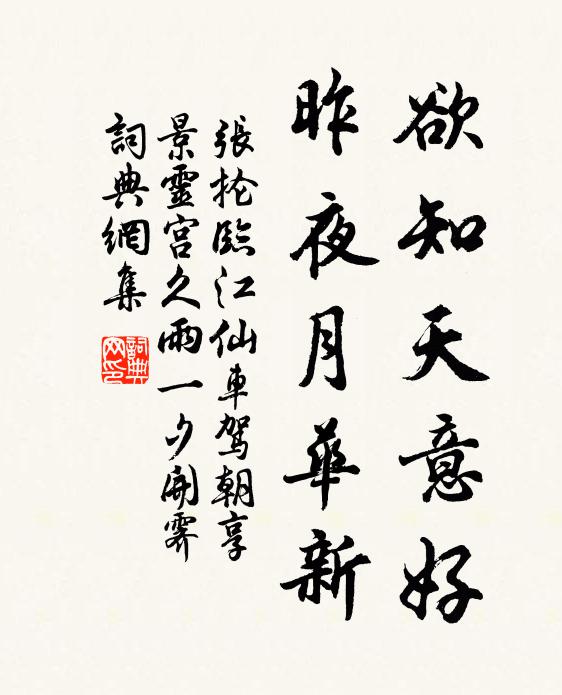 欲知天意好
昨夜月華新
張掄臨江仙車駕朝享
景靈宮久雨一夕開霽
詞典網集
詞典
網印